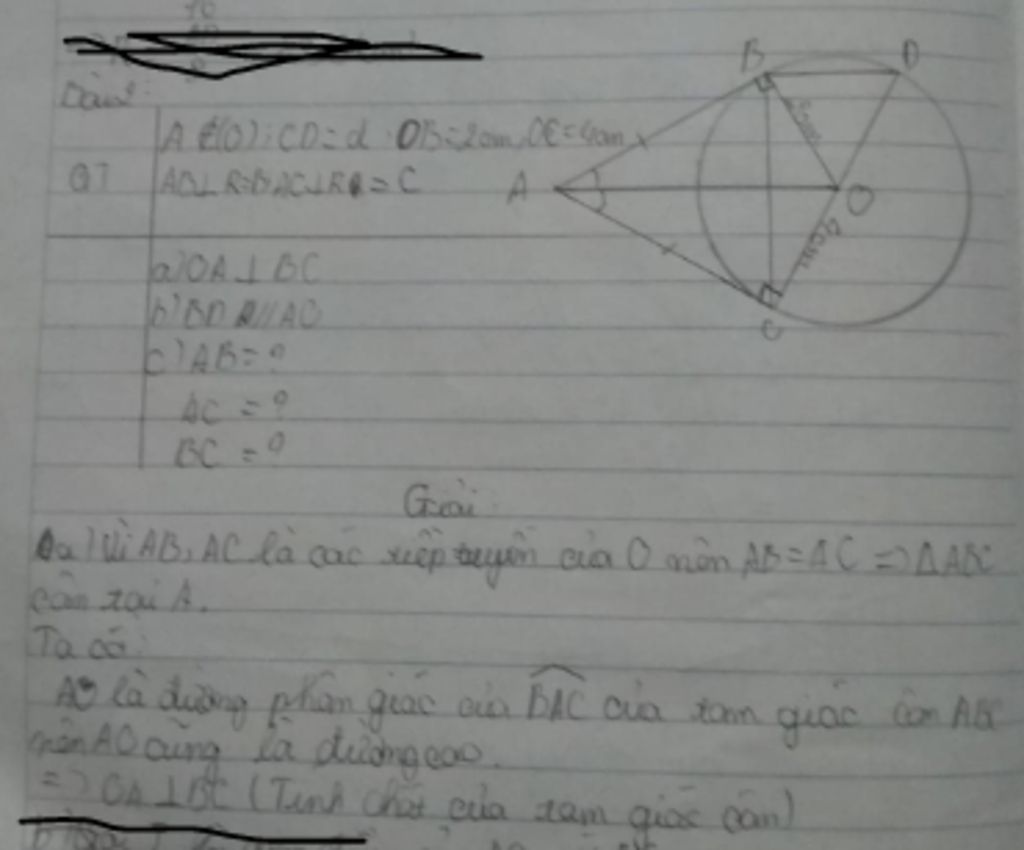 B D
A ∉ (O); CD = d OB = 2cm, OC = 4cm
GT
A O
a) OA ⊥ BC
b) BD // AO
C
c) AB = ?
AC = ?
BC = ?
Giải
a) Vì AB, AC là các tiếp tuyến của O nên AB = AC => ΔABC
cân tại A.
Ta có:
AO là đường phân giác của BAC của tam giác cân ABC
nên AO cũng là đường cao.
=> OA ⊥ BC (Tính chất của tam giác cân)